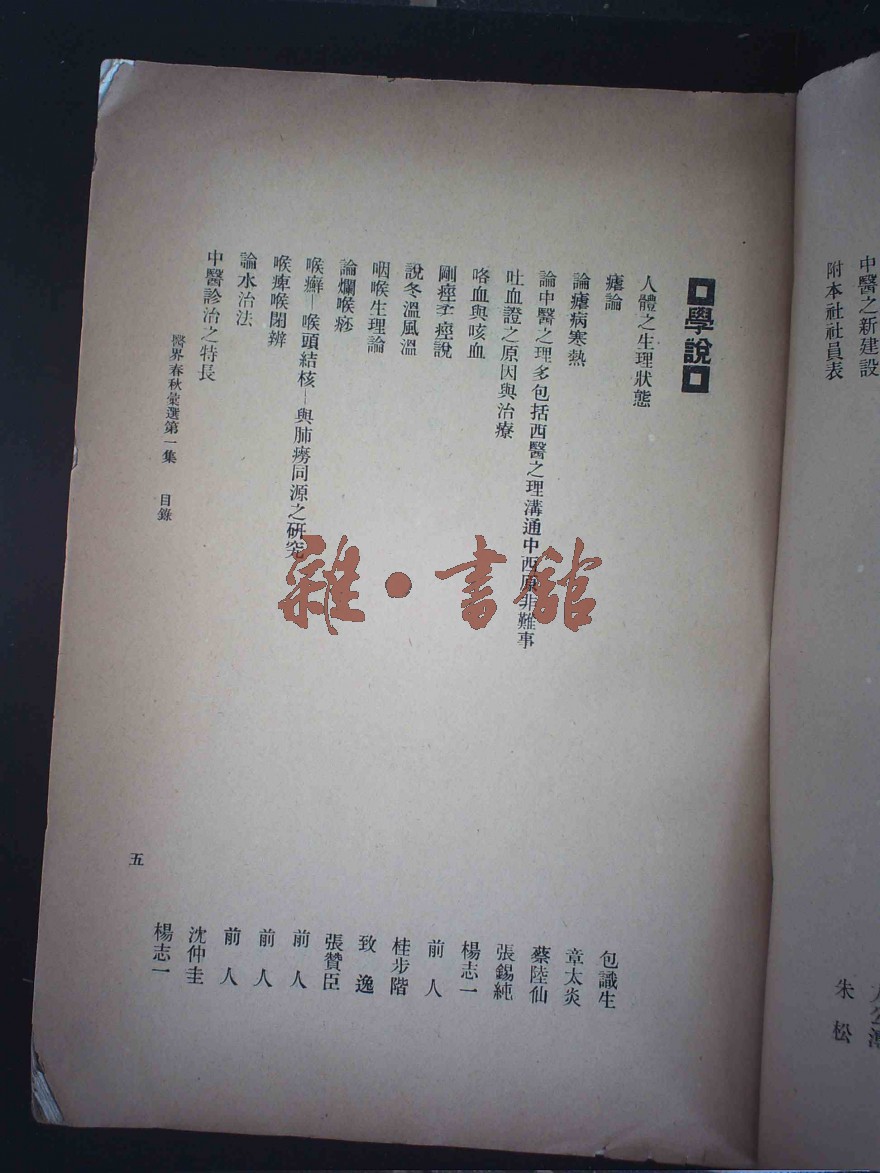 中醫之新建設
附本社社員表 朱松
學說
人體之生理狀態 包識生
瘧論 章太炎
論瘧病寒熱 蔡陸仙
論中醫之理多包括西醫之理溝通中西原非難事 張錫純
吐血證之原因與治療 楊志一
咯血與咳血 前人
剛痙柔痙說 桂步階
說冬溫風溫 致逸
咽喉生理論 張贊臣
論爛喉痧 前人
喉癬—喉頭結核—與肺癆同源之研究 前人
喉痺喉閉辨 前人
論水治法 沈仲圭
中醫診治之特長 楊志一
醫界春秋彙選第一集 目錄
五
雜·書館